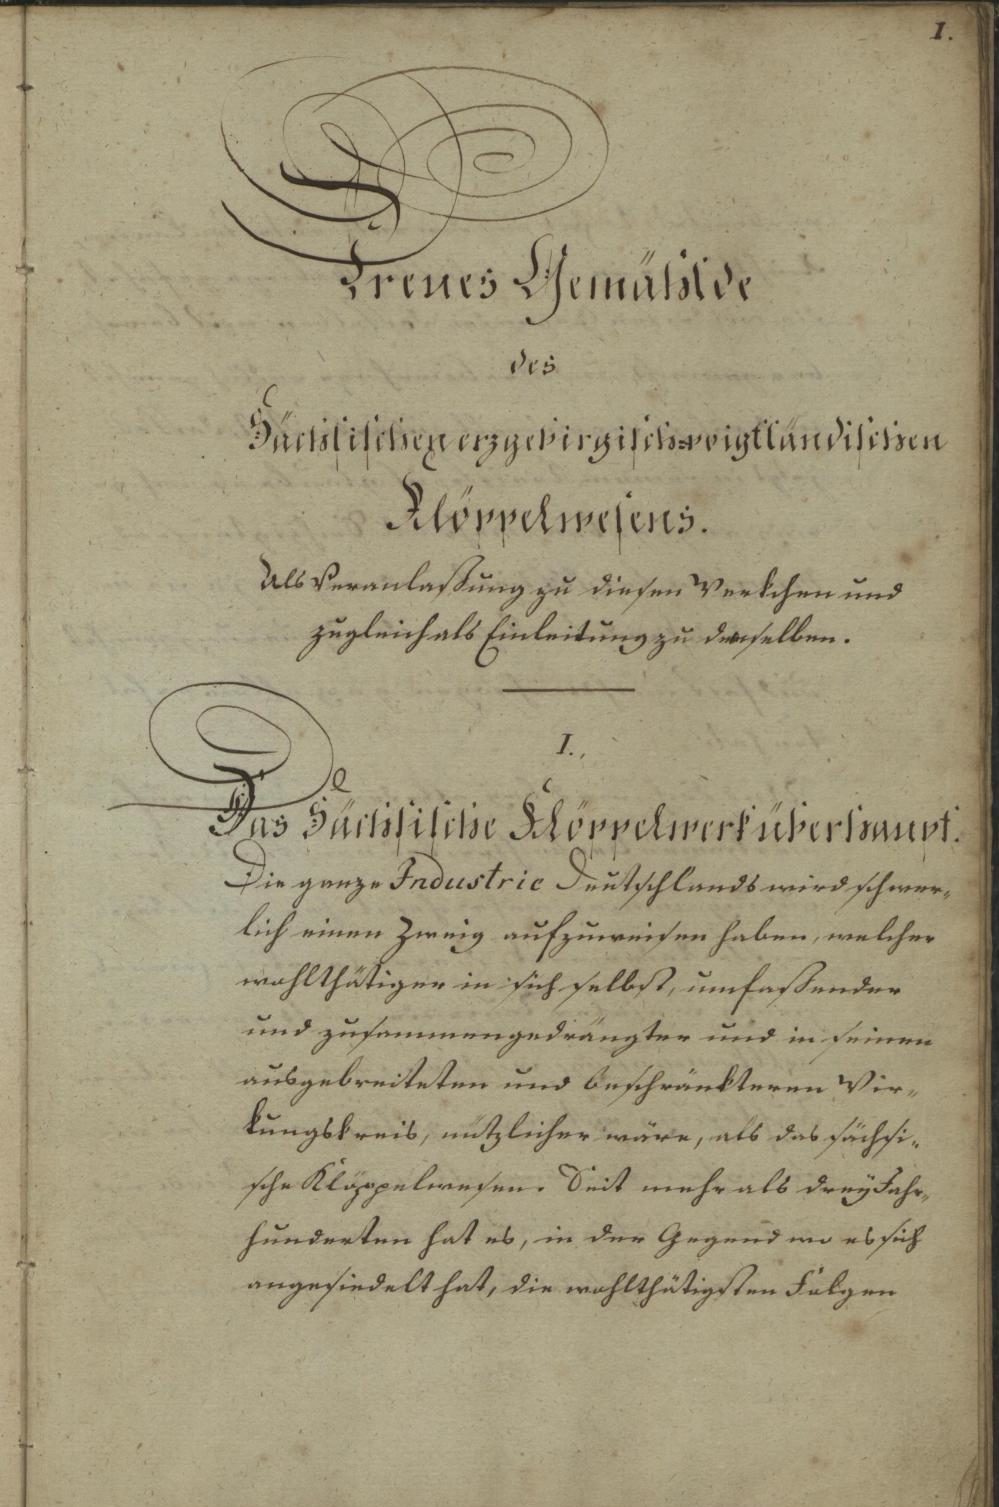 1.
Treues Gemählde
des
Sächsischen erzgebirgisch=voigtländischen
Klöppelwesens.
Als Veranlaßung zu diesen Werkchen und
zugleich als Einleitung zu demselben.
I.,
Das Sächsische Klöppelwerk überhaupt.
Die ganze Industrie Deutschlands wird schwer-
lich einen Zweig aufzuweisen haben, welcher
wohlthätiger in sich selbst, umfaßender
und zusammengedrängter und in seinen
ausgebreiteten und beschränkteren Wir-
kungskreis, nützlicher wäre, als das sächsi-
sche Klöppelwesen. Seit mehr als drey Jahr-
hunderten hat es, in der Gegend wo es sich
angesiedelt hat, die wohlthätigsten Folgen